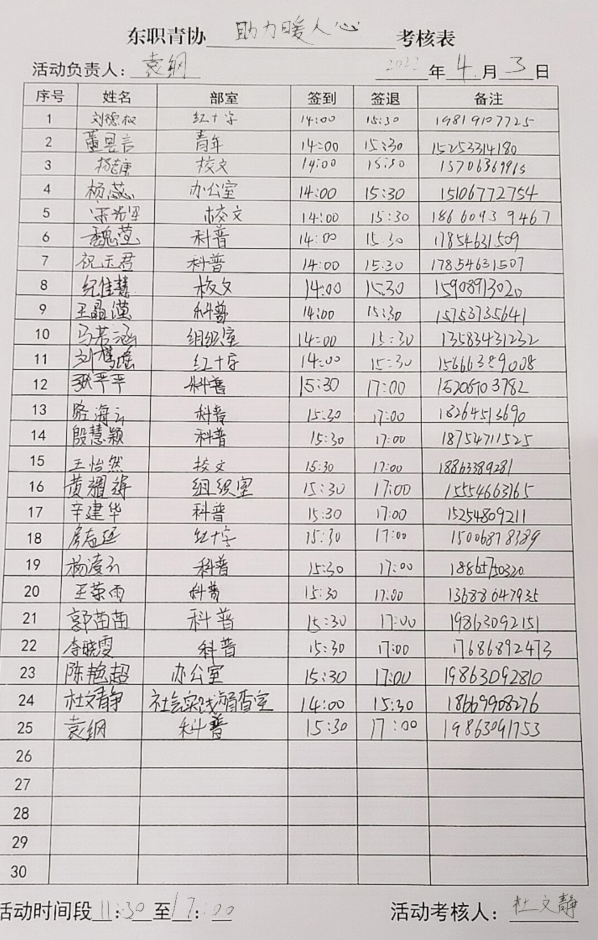 东职青协 助力暖人心 考核表
活动负责人: 袁纲 2022 年 4 月 3 日
序号 姓名 部室 签到 签退 备注
1 红十字 14:00 15:30 19819107725
2 青年 14:00 15:30 15253314180
3 校文 14:00 15:30
4 杨蕊 办公室 14:00 15:30 15106772754
5 校文 14:00 15:30 18660939467
6 魏莹 科普 14:00 15:30 17854631509
7 祝玉君 科普 14:00 15:30 17854631507
8 纪佳慧 校文 14:00 15:30 15908913020
9 王晶漢 科普 14:00 15:30 15753735641
10 马若涵 组织室 14:00 15:30 13583431232
11 红十字 14:00 15:30 15666389008
12 张平平 科普 15:30 17:00
13 骆海云 科普 15:30 17:00 18264513690
14 殷慧颖 科普 15:30 17:00 18754711525
15 王怡然 校文 15:30 17:00 18863389281
16 组织室 15:30 17:00 15554663165
17 辛建华 科普 15:30 17:00 15254809211
18 红十字 15:30 17:00 15006878389
19 杨凌云 科普 15:30 17:00
20 王荣雨 科普 15:30 17:00 13688647935
21 郭苗苗 科普 15:30 17:00 19863092151
22 李晓雯 科普 15:30 17:00 17686892473
23 陈艳超 办公室 15:30 17:00 19863092810
24 杜文静 社会实践调查室 14:00 15:30 18669908276
25 袁纲 科普 15:30 17:00 19863091753
26
27
28
29
30
活动时间段 11:30 至 17:00 活动考核人: 杜文静